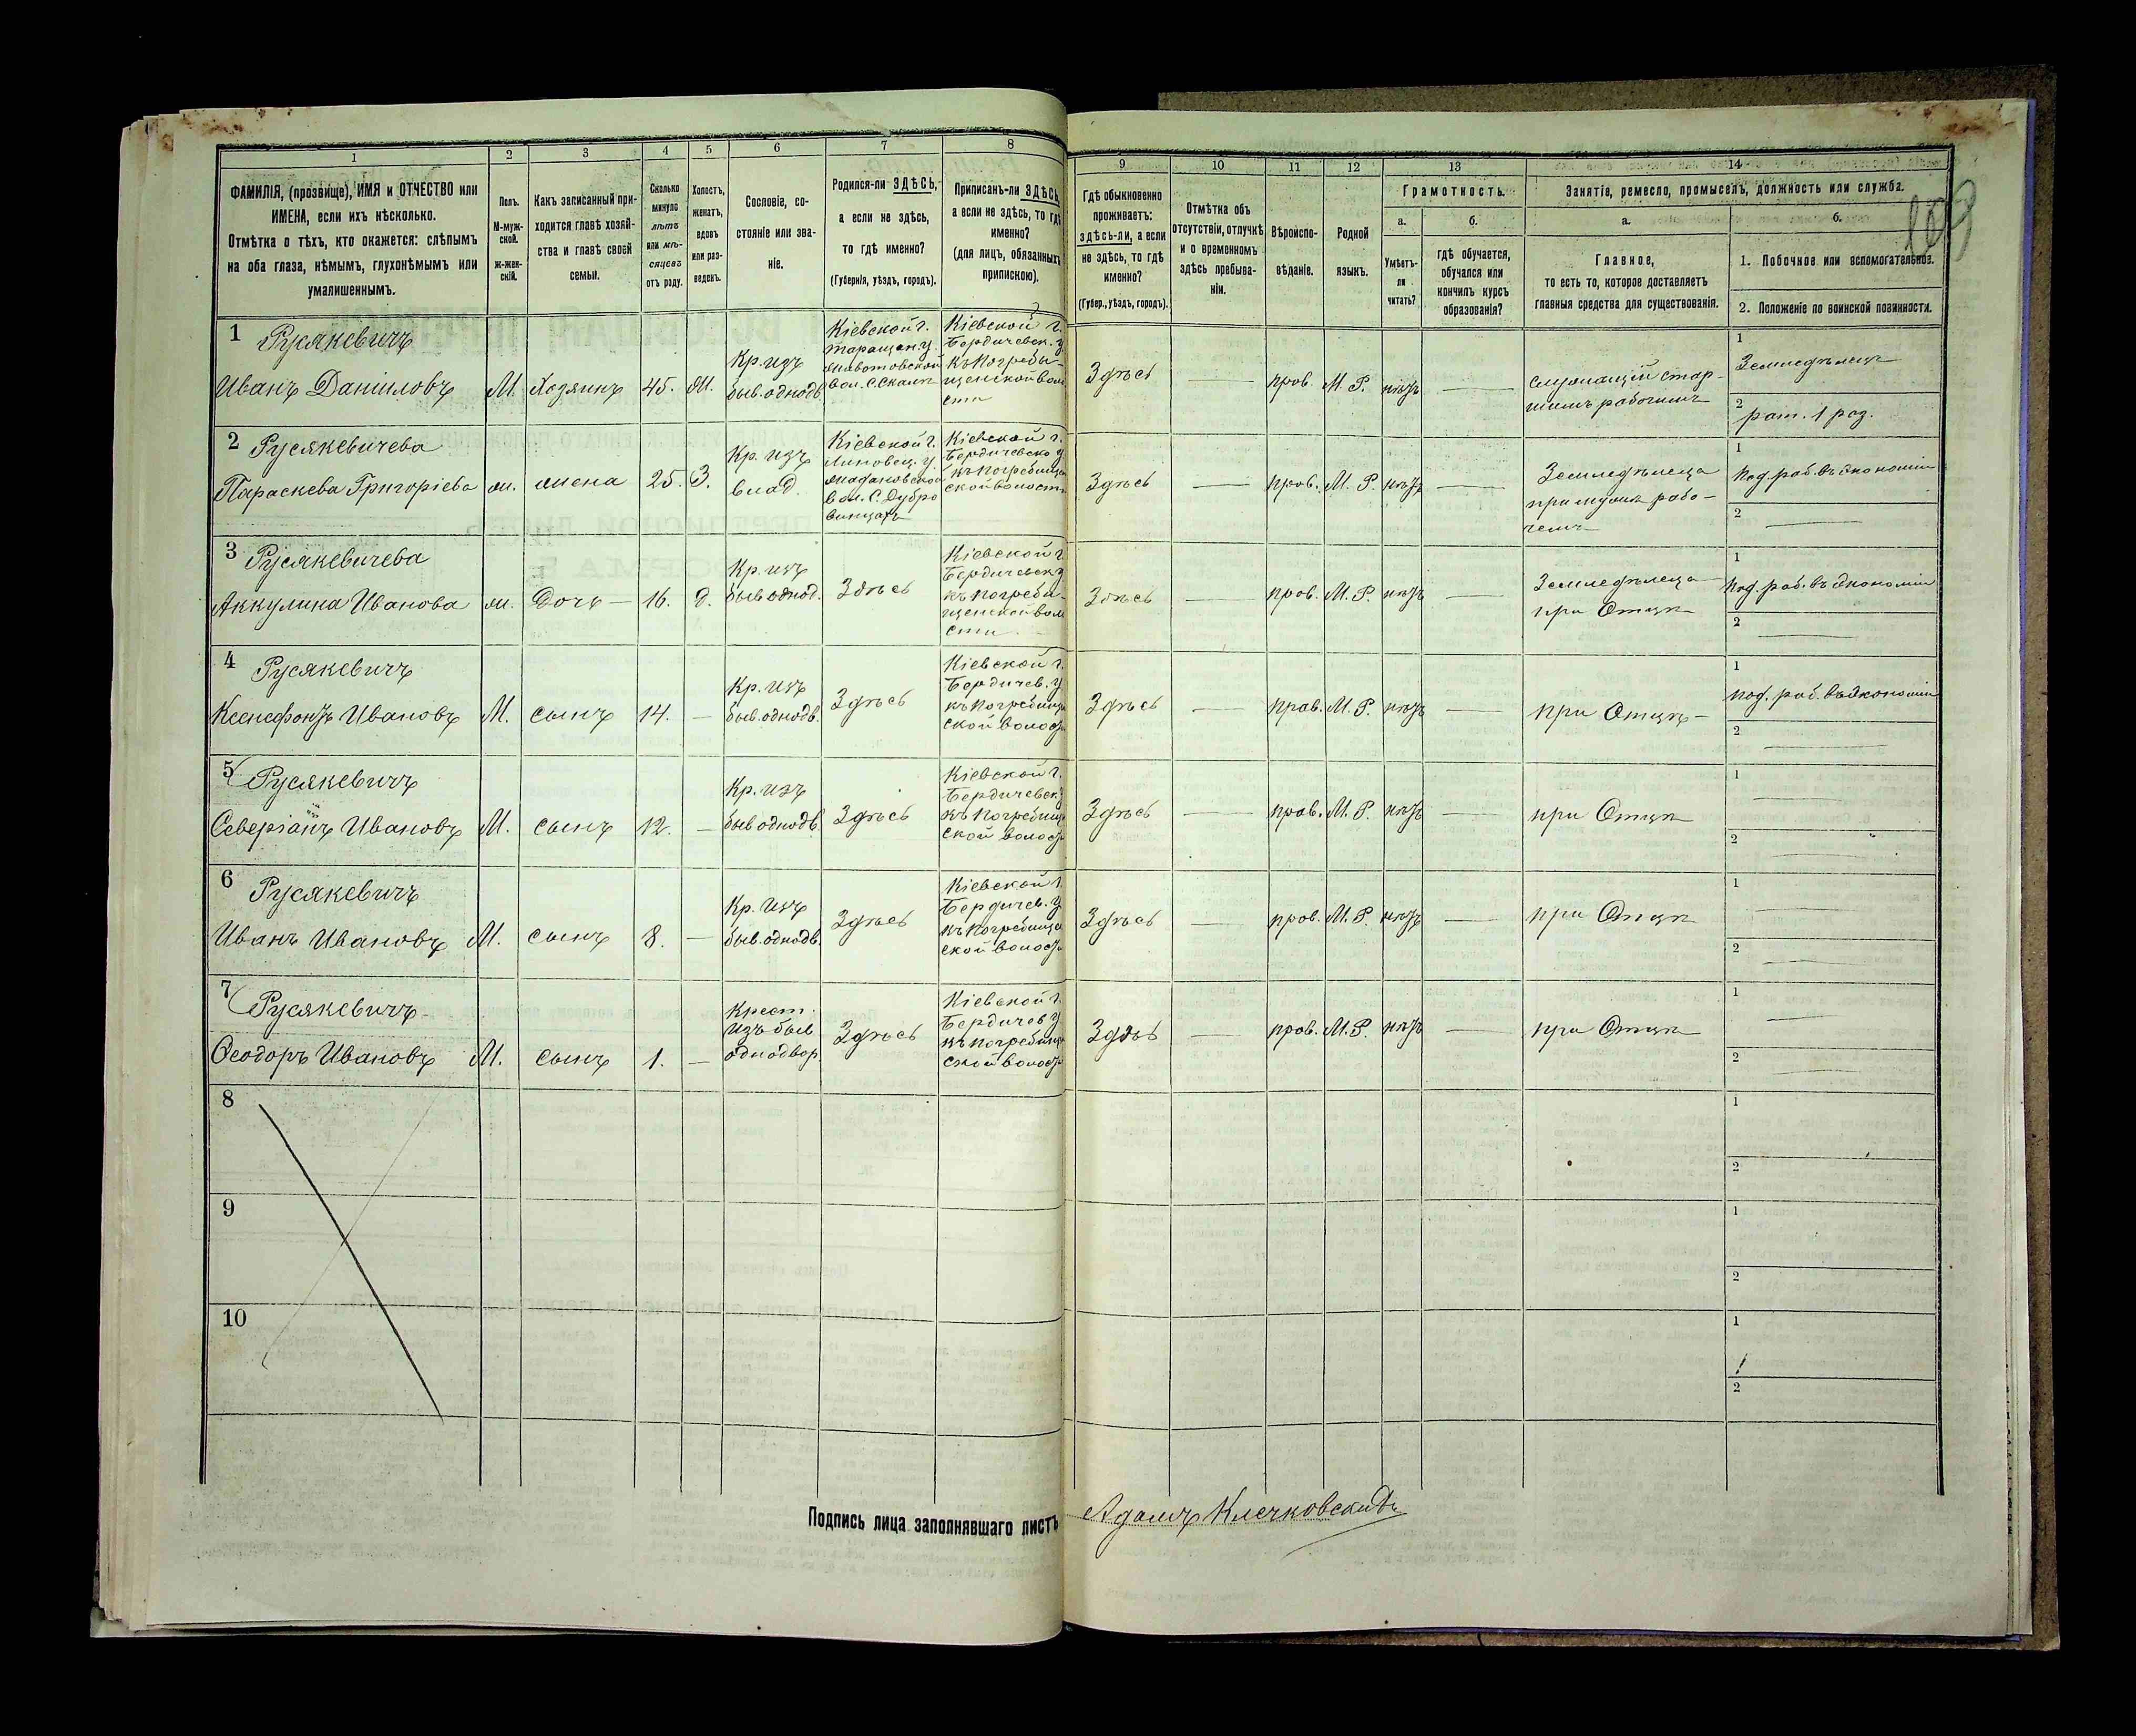 1
2
3
4
5
6
7
8
9
10
11
12
13
14
ФАМИЛІЯ, (прозвище), ИМЯ и ОТЧЕСТВО или
ИМЕНА, если ихъ нѣсколько.
Отмѣтка о тѣхъ, кто окажется: слѣпымъ
на оба глаза, нѣмымъ, глухонѣмымъ или
умалишеннымъ.
Полъ.
М-муж-
ской.
ж-жен-
скій.
Какъ записанный при-
ходится главѣ хозяй-
ства и главѣ своей
семьи.
Сколько
минуло
лѣтъ
или мѣ-
сяцевъ
отъ роду.
Холостъ,
женатъ,
вдовъ
или раз-
веденъ.
Сословіе, со-
стояніе или зва-
ніе.
Родился-ли ЗДѢСЬ,
а если не здѣсь,
то гдѣ именно?
(Губернія, уѣздъ, городъ).
Приписанъ-ли ЗДѢСЬ,
а если не здѣсь, то гдѣ
именно?
(для лицъ, обязанныхъ
припискою).
Гдѣ обыкновенно
проживаетъ:
здѣсь-ли, а если
не здѣсь, то гдѣ
именно?
(Губер., уѣздъ, городъ).
Отмѣтка объ
отсутствіи, отлучкѣ
и о временномъ
здѣсь пребыва-
ніи.
Вѣроиспо-
вѣданіе.
Родной
языкъ.
Грамотность.
а.
б.
Умѣетъ-
ли
читать?
гдѣ обучается,
обучался или
кончилъ курсъ
образованія?
Занятіе, ремесло, промыселъ, должность или служба.
а.
б.
Главное,
то есть то, которое доставляетъ
главныя средства для существованія.
1. Побочное или вспомогательное.
2. Положеніе по воинской повинности.
1
Русякевичъ
Иванъ Даніиловъ
М.
Хозяинъ
45.
Ж.
Кр. изъ
быв. однодв.
Кіевской г.
Таращан. у.
Кіевской г.
Бердичевск. у.
къ Погребы-
щенской воло
сти
Здѣсь
прав.
М. Р.
нѣтъ
служащій стар-
шимъ рабочимъ
1
Земледѣлецъ
2
рат. 1 раз.
2
Русякевичева
Параскева Григоріева
ж.
жена
25.
З.
Кр. изъ
влад.
Кіевской г.
Липовец. у.
Кіевской г.
Бердичевско у.
къ Погребище
ской волости
Здѣсь
прав.
М. Р.
нѣтъ
Земледѣлица
при мужѣ рабо-
чемъ
1
Под. раб. въ экономіи
2
3
Русякевичева
Аккулина Иванова
ж.
Дочь
16.
Д.
Кр. изъ
быв. однод.
Здѣсь
Кіевской г.
Бердичевск. у.
къ Погребы-
щенской воло
сти
Здѣсь
прав.
М. Р.
нѣтъ
Земледѣлица
при Отцѣ
1
Под. раб. въ экономіи
2
4
Русякевичъ
Ксенофонтъ Ивановъ
М.
сынъ
14.
Кр. изъ
быв. однодв.
Здѣсь
Кіевской г.
Бердичев. у.
къ Погребище
ской волости
Здѣсь
прав.
М. Р.
нѣтъ
при Отцѣ
1
под. раб. въ экономіи
2
5
Русякевичъ
Северіанъ Ивановъ
М.
сынъ
12.
Кр. изъ
быв. однодв.
Здѣсь
Кіевской г.
Бердичевск. у.
къ Погребище
ской волости
Здѣсь
прав.
М. Р.
нѣтъ
при Отцѣ
1
2
6
Русякевичъ
Иванъ Ивановъ
М.
сынъ
8.
Кр. изъ
быв. однодв.
Здѣсь
Кіевской г.
Бердичев. у.
къ Погребище
ской волости
Здѣсь
прав.
М. Р.
нѣтъ
при Отцѣ
1
2
7
Русякевичъ
Ѳеодоръ Ивановъ
М.
сынъ
1.
Крест.
изъ быв
однодвор.
Здѣсь
Кіевской г.
Бердичев у
къ Погребище
ской волости
Здѣсь
прав.
М. Р.
нѣтъ
при Отцѣ
1
2
8
1
2
9
1
2
10
1
2
Подпись лица заполнявшаго листъ
Адамъ Клечковскій